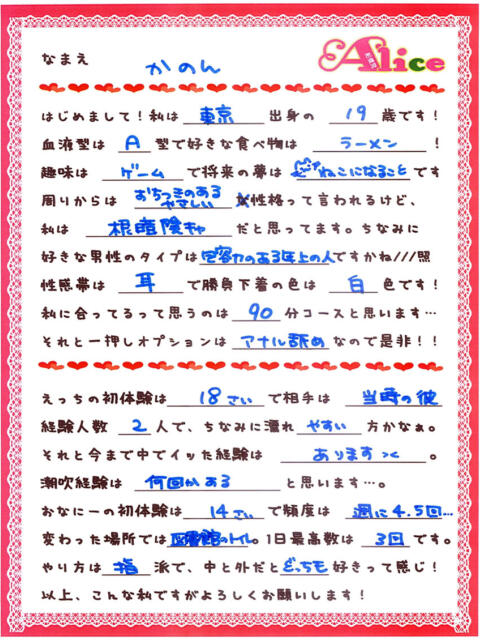 なまえ かのん
お客様用 Alice
はじめまして!私は 東京 出身の 19 歳です!
血液型は A 型で好きな食べ物は ラーメン !
趣味は ゲーム で将来の夢は ねこになること です
周りからは おちつきのある やさしい 性格って言われるけど、
私は 根暗陰キャ だと思ってます。ちなみに
好きな男性のタイプは包容力のある年上の人ですかね///照
性感帯は 耳 で勝負下着の色は 白 色です!
私に合ってるって思うのは 90 分コースと思います…
それと一押しオプションは アナル舐め なので是非!!
えっちの初体験は 18さい で相手は 当時の彼
経験人数 2 人で、ちなみに濡れ やすい 方かなぁ。
それと今まで中でイッた経験は あります>< 。
潮吹経験は 何回かある と思います…。
変わった場所では図書館のトイレ。1日最高数は 3回 です。
やり方は 指 派で、中と外だとどっちも好きって感じ!
以上、こんな私ですがよろしくお願いします!